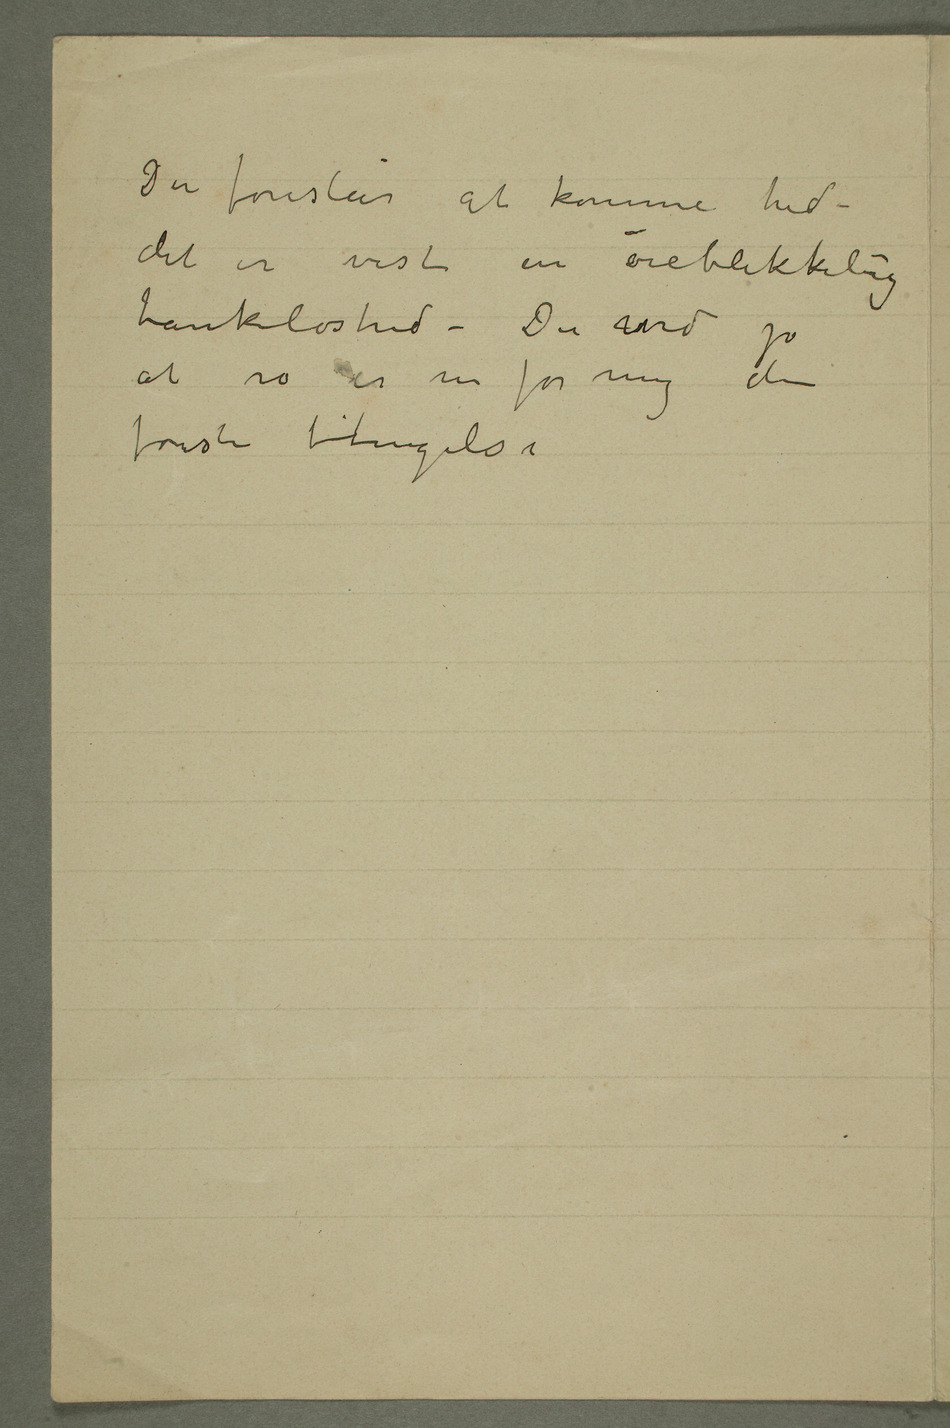 Du foreslår at komme hid –
det er vist en øieblikkelig
tankeløshed – Du ved jo
at ro er nu for mig den
første betingelse